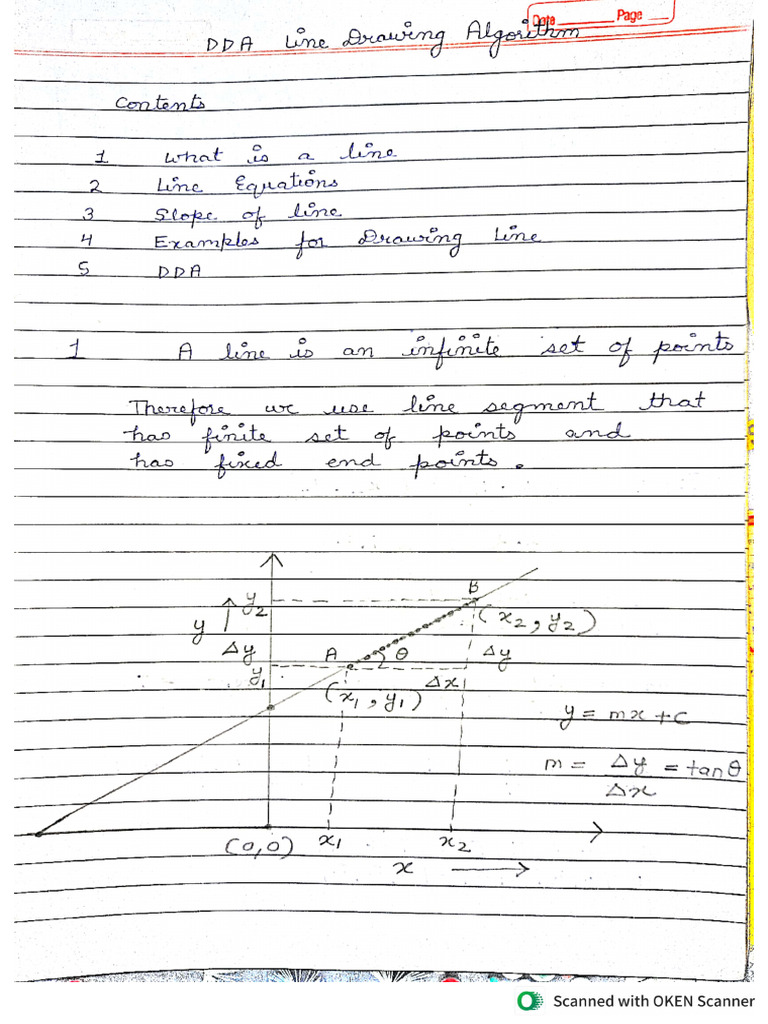 Date ________ Page ___
DDA Line Drawing Algorithm
Contents
1 What is a line
2 Line Equations
3 Slope of line
4 Examples for Drawing Line
5 DDA
1 A line is an infinite set of points
Therefore we use line segment that
has finite set of points and
has fixed end points.
B
y2
(x2, y2)
y
Δy
A
θ
Δy
y1
Δx
(x1, y1)
y = mx + c
m = Δy/Δx = tanθ
(0,0) x1 x2
x
Scanned with OKEN Scanner